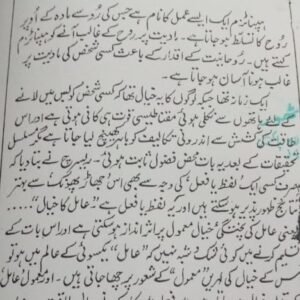 ہپناٹزم ایک ایسے عمل کا نام ہے جس کی رُو سے مادہ کے اُوپر
رُوح کا تسلّط ہو جاتا ہے۔ مادیت پر رُوح کے غالب آنے کو ہپناٹزم
کہتے ہیں۔ روحانیت کے اقدار کے باعث کسی شخص کی مادیت پر
غالب ہونا آسان ہو جاتا ہے۔
ایک زمانہ تھا جبکہ لوگوں کا یہ خیال تھا کہ کسی شخص کو بس میں لانے
ہاتھوں سے نکلی ہوئی مقناطیسی قوت ہی کافی ہوتی ہے اور اس
طاقت کی کشش سے اندرونی تکالیف کو باہر کھینچ لیا جاتا ہے مگر مسلسل
تحقیقات کے بعد یہ بات محض فضول ثابت ہوئی۔ ریسرچ نے بتا دیا کہ
صرف کسی ایک لفظ یا فعل کی وجہ سے بھی اس جھاڑ پھونک سے بہتر
نتائج ظہور پذیر ہو سکتے ہیں اور یہ لفظ یا فعل ہے "عامل کا خیال"......
یعنی عامل کی پختگی خیال معمول پر اثر انداز ہو سکتی ہے اور اس بات کے
تسلیم کرنے میں کوئی شک و شبہ نہیں کہ "عامل" یکسوئی کے عالم میں ہو تو
اس کے خیال کی لہریں "معمول" کے شعور پر چھا جاتی ہیں۔ اور معمول عامل